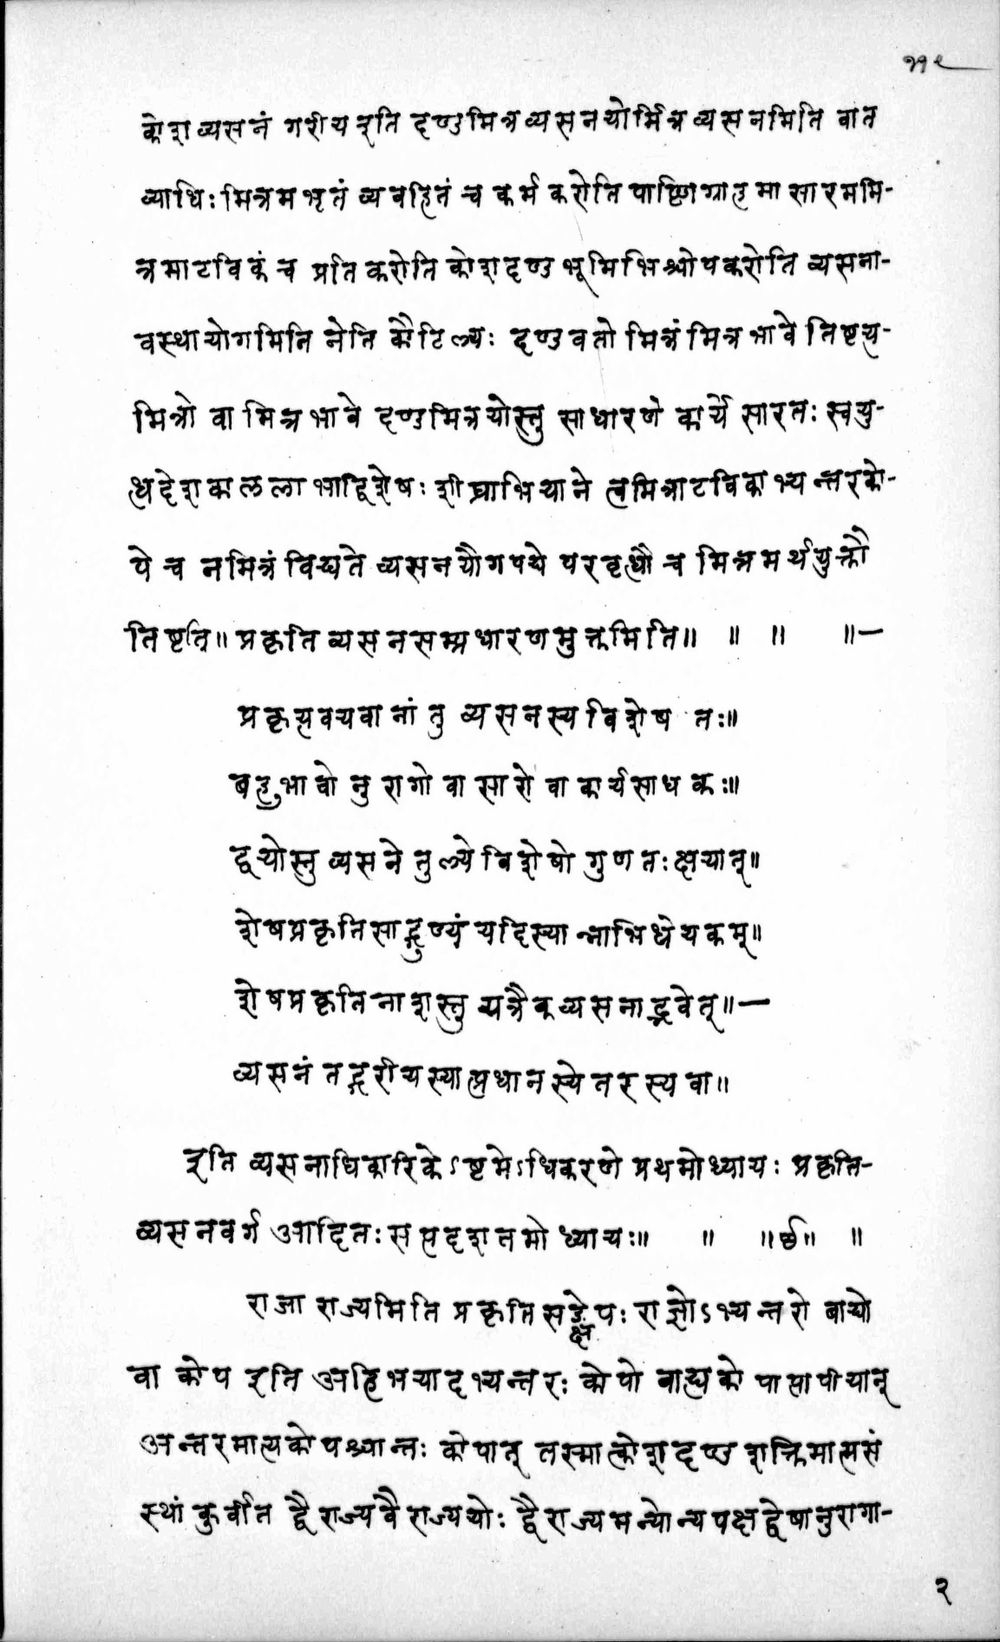 कोशव्यसनं गरीय इति दण्डमित्रव्यसनयोर्मित्रव्यसनमिति वात
व्याधिः मित्रमभृतं व्यवहितं च कर्म करोति पार्ष्णिग्राहमासारममि-
त्रमाटविकं च प्रतिकरोति कोशदण्डभूमिभिश्चोपकरोति व्यसना-
वस्थायोगमिति नेति कौटिल्यः दण्डवतो मित्रं मित्रभावे तिष्टत्य-
मित्रो वा मित्रभावे दण्डमित्रयोस्तु साधारणे कार्ये सारतः स्वयु-
त्धदेशकाललाभाद्विशेषः शीघ्राभियाने त्वमित्राटविकाभ्यन्तरको-
पे च नमित्रं विद्यते व्यसनयौगपद्ये परवृत्धौ च मित्रमर्थयुक्तौ
तिष्टति॥ प्रकृतिव्यसनसम्प्रधारणमुक्तमिति॥ ॥ ॥ ॥—
प्रकृत्यवयवानां तु व्यसनस्य विशेषतः॥
बहुभावो नुरागो वा सारो वा कार्यसाधकः॥
द्वयोस्तु व्यसने तुल्ये विशेषो गुणतः क्षयात्॥
शेषप्रकृतिसाद्गुण्यं यदि स्यान्नाभिधेयकम्॥
शेषप्रकृतिनाशस्तु यत्रैकव्यसनाद्भवेत्॥—
व्यसनं तद्गरीयस्यात्प्रधानस्येतरस्य वा॥
इति व्यसनाधिकारिकेऽष्टमेऽधिकरणे प्रथमोध्यायः प्रकृति-
व्यसनवर्ग आदितः सप्तदशतमोध्यायः॥ ॥ ॥छ॥ ॥
राजा राज्यमिति प्रकृतिसङ्क्षेपः राज्ञोऽभ्यन्तरो बाह्यो
वा कोप इति अहिभयादभ्यन्तरः कोपो बाह्यकोपात्पापीयान्
अन्तरमात्यकोपश्चान्तः कोपात् तस्मात्कोशदण्डशक्तिमात्मसं
स्थां कुर्वीत द्वैराज्यवैराज्ययोः द्वैराज्यमन्योन्यपक्षद्वेषानुरागा-
२